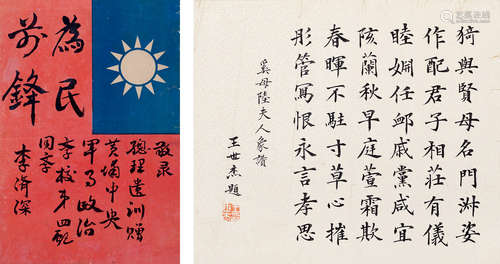 為民
前鋒
敬录
總理遺訓贈
黃埔中央
軍事政治
學校第四期
同學
李濟深
猗與賢母名門淑姿
作配君子相莊有儀
睦婣任卹戚黨咸宜
陔蘭秋早庭萱霜欺
春暉不駐寸草心摧
彤管寫恨永言孝思
奚母陸夫人象贊
王世杰題